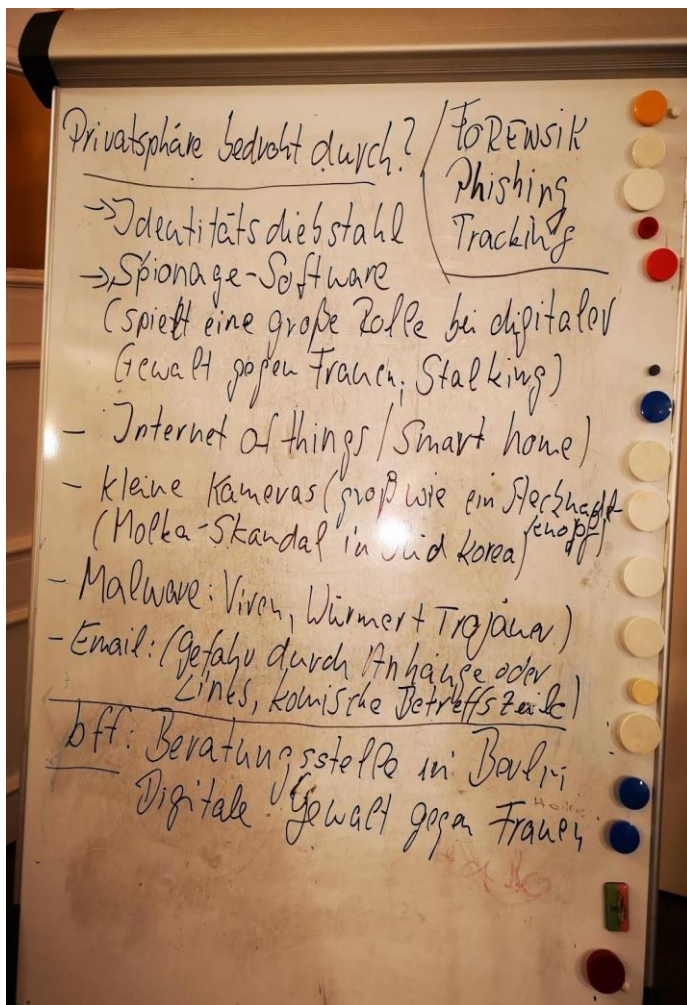 Privatsphäre bedroht durch?
FORENSIK
Phishing
Tracking
→ Identitätsdiebstahl
→ Spionage-Software
(spielt eine große Rolle bei digitaler
Gewalt gegen Frauen, Stalking)
- Internet of things / Smart home)
- kleine Kameras (groß wie ein Stecknadel-
knopf)
(Molka-Skandal in Südkorea)
- Malware: Viren, Würmer + Trojaner)
- Email: (Gefahr durch Anhänge oder
Links, komische Betreffszeile)
bff: Beratungsstelle in Berlin
Digitale Gewalt gegen Frauen